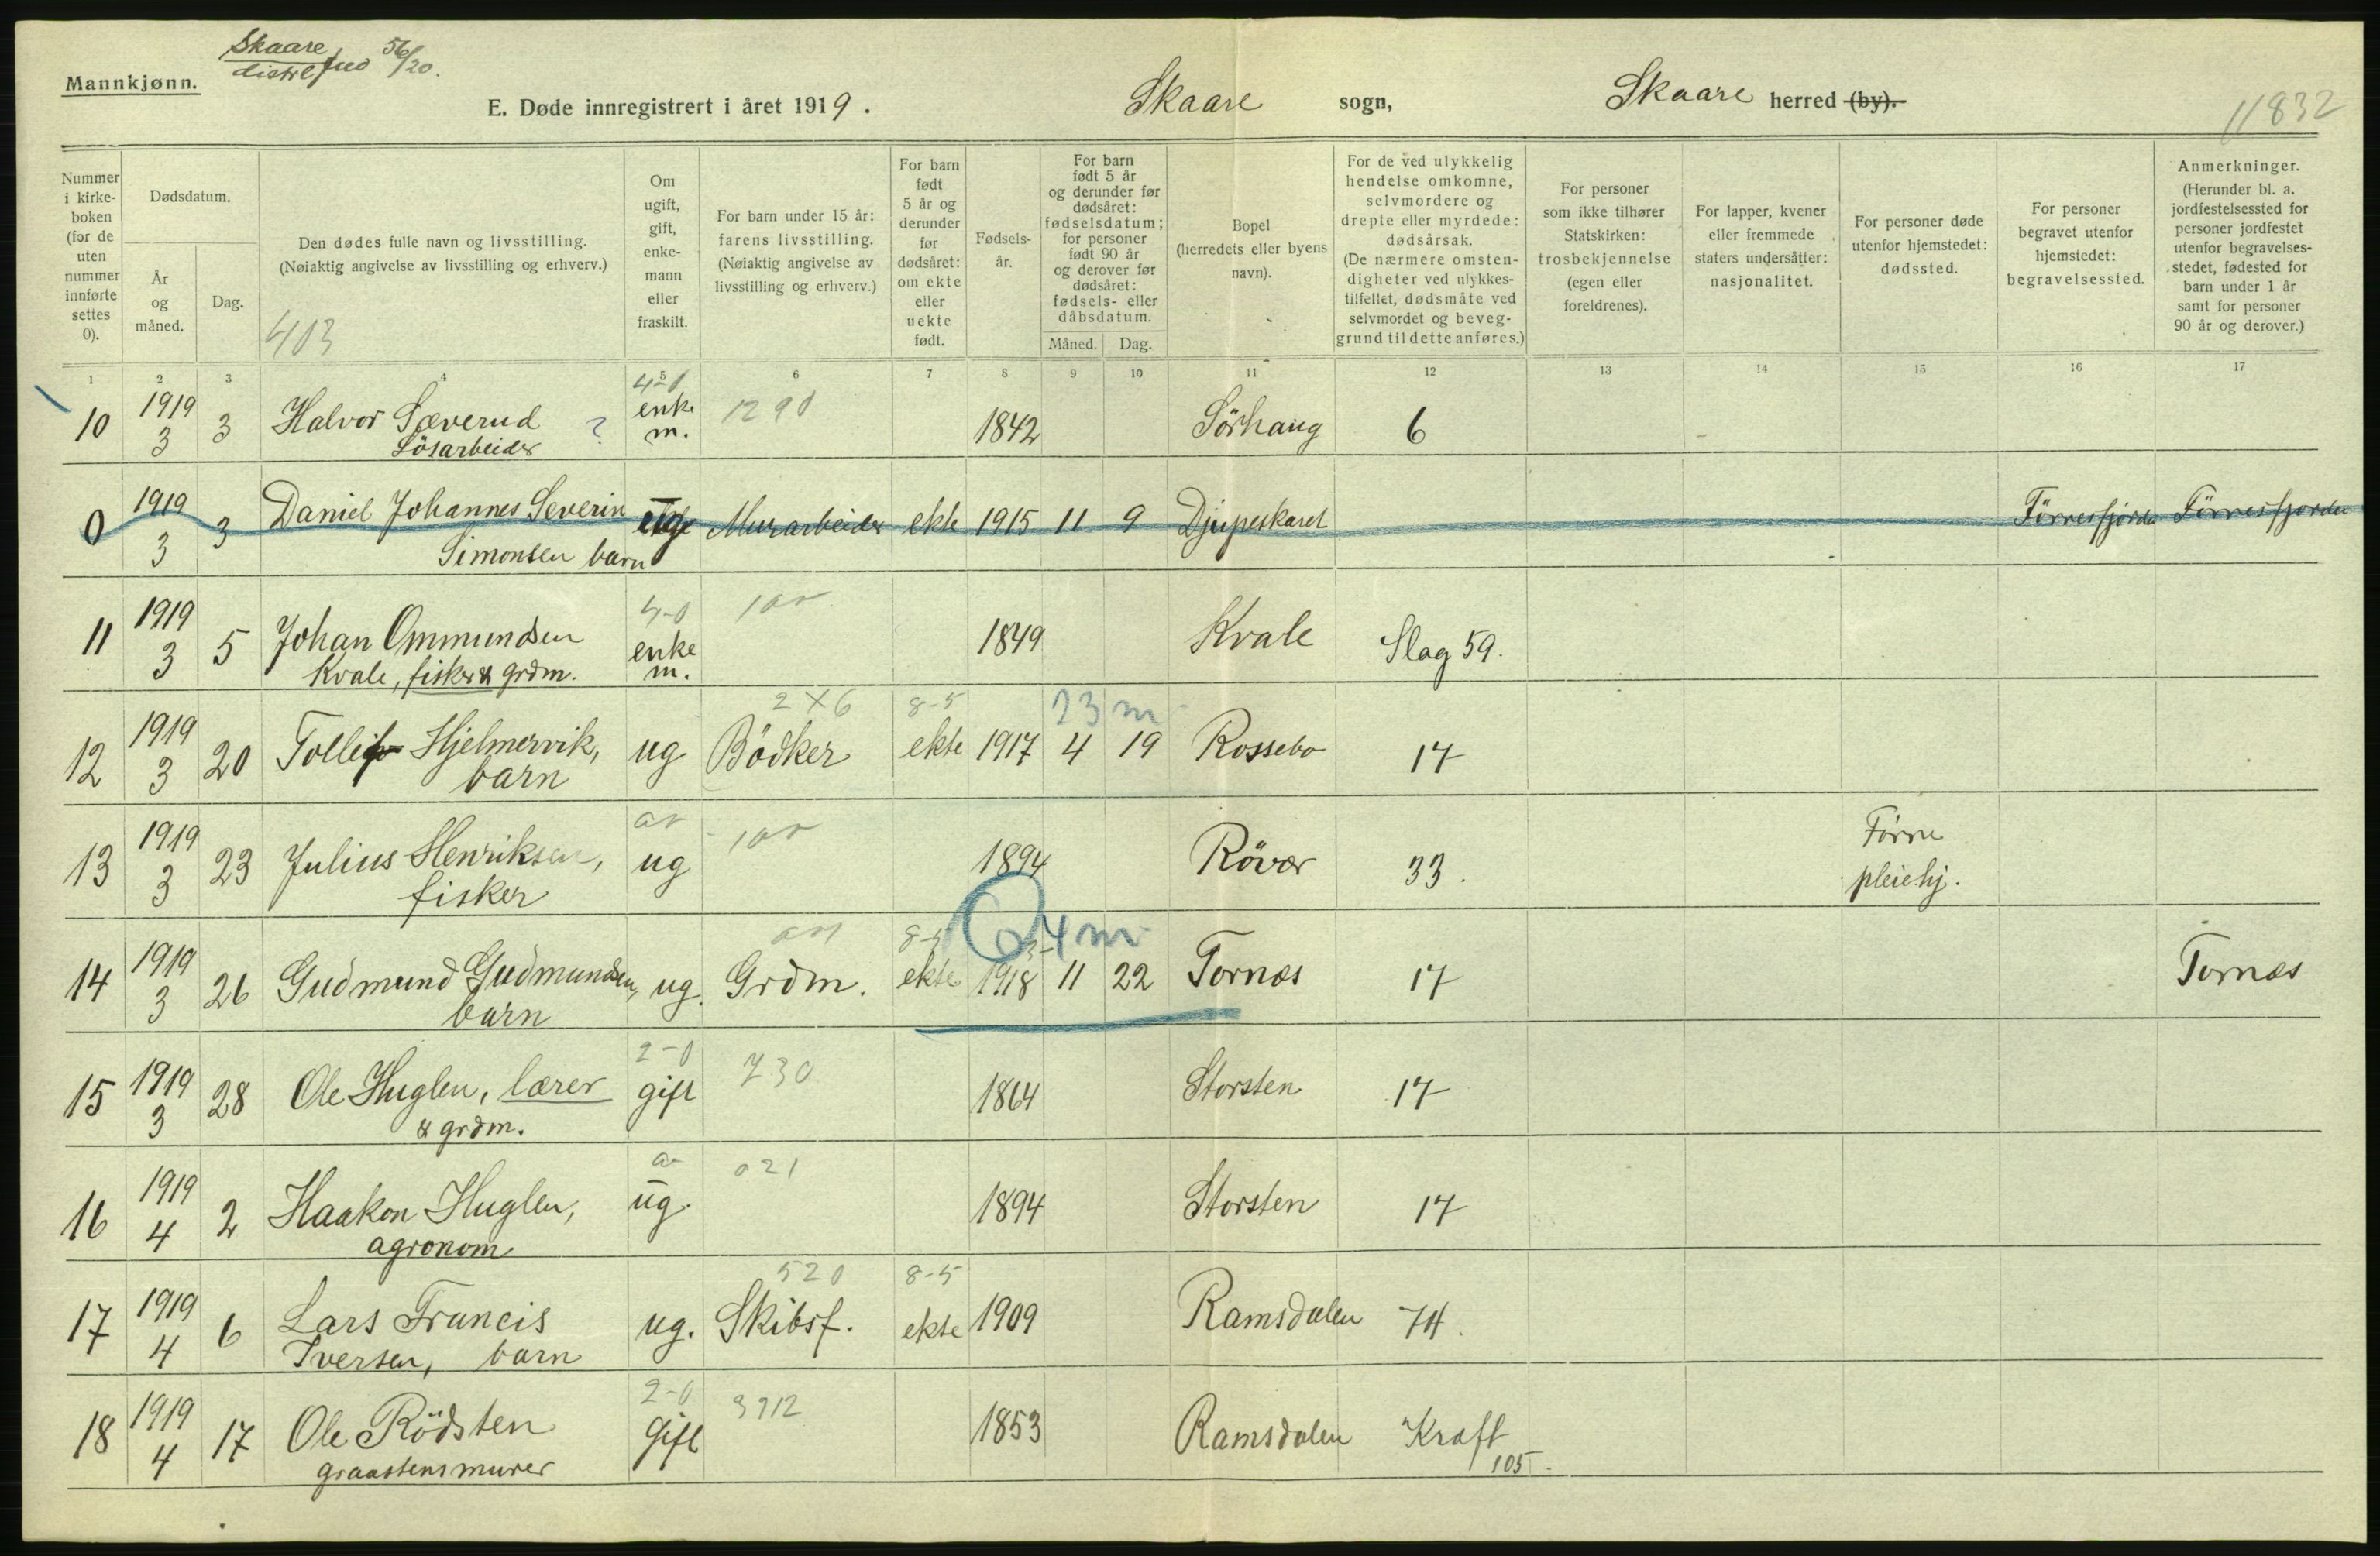 Skaare 56/20.
distr
Mannkjønn.
E. Døde innregistrert i året 1919. Skaare sogn, Skaare herred (by).
11832
Nummer i kirkeboken (for de uten nummer innførte settes 0).
Dødsdatum.
År og måned.
Dag.
Den dødes fulle navn og livsstilling.
(Nøiaktig angivelse av livsstilling og erhverv.)
403
Om ugift, gift, enkemann eller fraskilt.
For barn under 15 år: farens livsstilling. (Nøiaktig angivelse av livsstilling og erhverv.)
For barn født 5 år og derunder før dødsåret: om ekte eller uekte født.
Fødselsår.
For barn født 5 år og derunder før dødsåret: fødselsdatum; for personer født 90 år og derover før dødsåret: fødsels- eller dåbsdatum.
Måned. Dag.
Bopel (herredets eller byens navn).
For de ved ulykkelig hendelse omkomne, selvmordere og drepte eller myrdede: dødsårsak. (De nærmere omstendigheter ved ulykkestilfellet, dødsmåte ved selvmordet og beveggrund til dette anføres.)
For personer som ikke tilhører Statskirken: trosbekjennelse (egen eller foreldrenes).
For lapper, kvener eller fremmede staters undersåtter: nasjonalitet.
For personer døde utenfor hjemstedet: dødssted.
For personer begravet utenfor hjemstedet: begravelsessted.
Anmerkninger. (Herunder bl. a. jordfestelsessted for personer jordfestet utenfor begravelsesstedet, fødested for barn under 1 år samt for personer 90 år og derover.)
1 2 3 4 5 6 7 8 9 10 11 12 13 14 15 16 17
4-0 1290
10 1919 3 3 Halvor Sæverud ? enke m. 1842 Sörhaug 6
Lösarbeider
0 1919 3 3 Daniel Johannes Severin Murarbeider ekte 1915 11 9 Djupeskaret Förresfjorden Förresfjorden
Simonsen barn
4-0
11 1919 3 5 Johan Ommundsen enke m. 1849 Kvale Slag 59.
Kvale, fisker & grdm.
2X6 8-5 23 m
12 1919 3 20 Tolleif Hjelmervik, ug Bödker ekte 1917 4 19 Rossebo 17
barn
13 1919 3 23 Julius Henriksen, ug 1894 Rövær 33. Förre pleiehj.
fisker
4 m
14 1919 3 26 Gudmund Gudmundsen, ug. Grdm. ekte 1918 11 22 Tornæs 17 Tornæs
barn
2-0 730
15 1919 3 28 Ole Huglen, lærer gift 1864 Storsten 17
& grdm.
021
16 1919 4 2 Haakon Huglen, ug. 1894 Storsten 17
agronom
520 8-5
17 1919 4 6 Lars Francis ug. Skibsf. ekte 1909 Ramsdalen 74.
Iversen, barn
2-0 3912
18 1919 4 17 Ole Rödsten Gift 1853 Ramsdalen Kræft 105.
graastensmurer